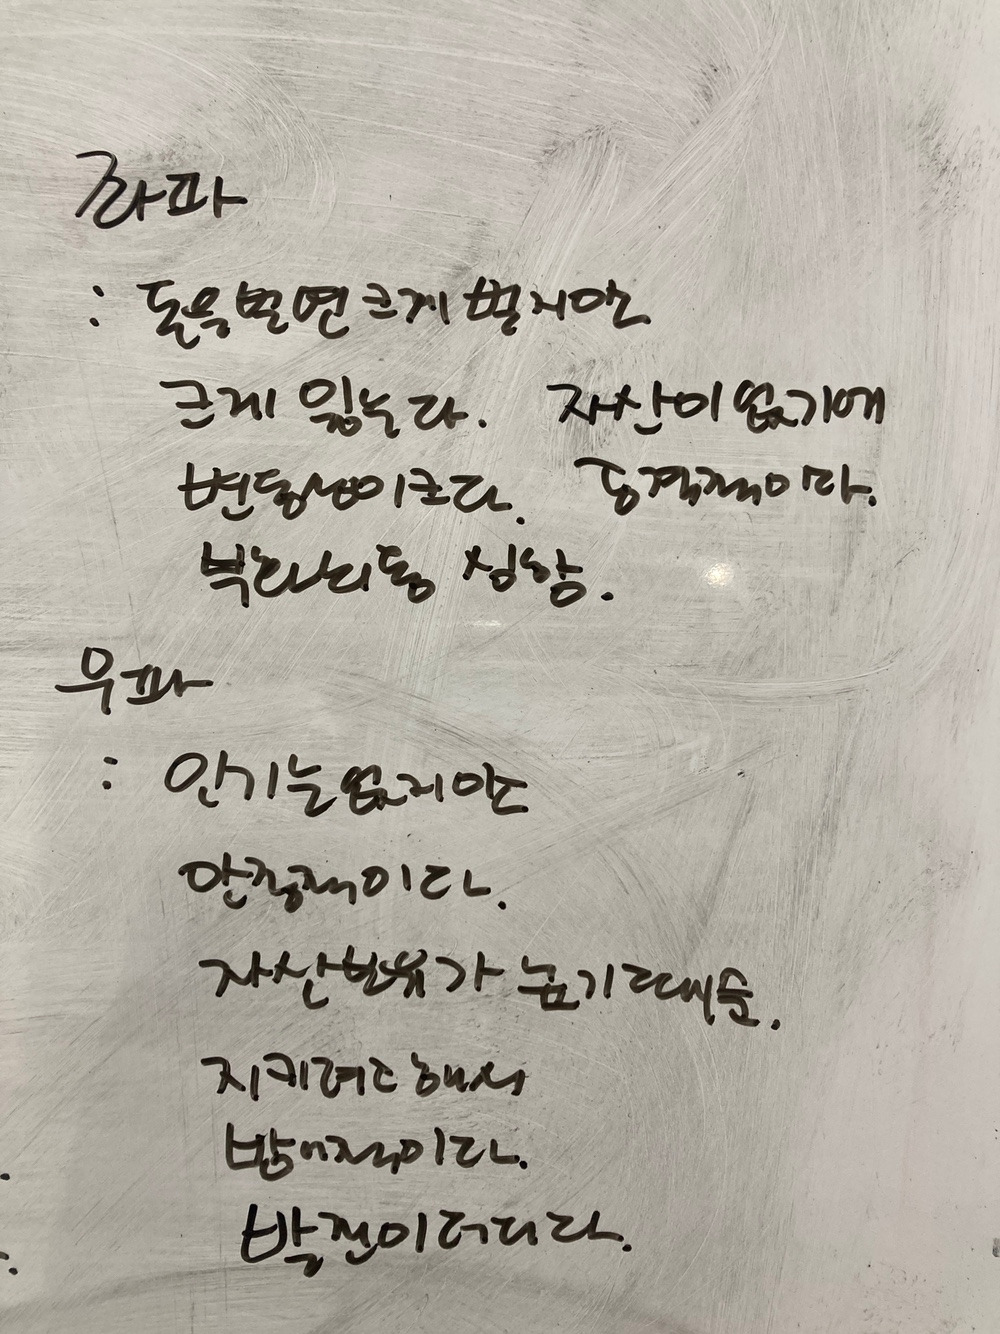 좌파
: 돈을 벌면 크게 벌지만
크게 잃는다. 자산이 없기에
변동성이 크다. 공격적이다.
부화뇌동 성향.
우파
: 인기는 없지만
안정적이다.
자산보유가 높기 때문.
지키려고 해서
방어적이다.
발전이 더디다.